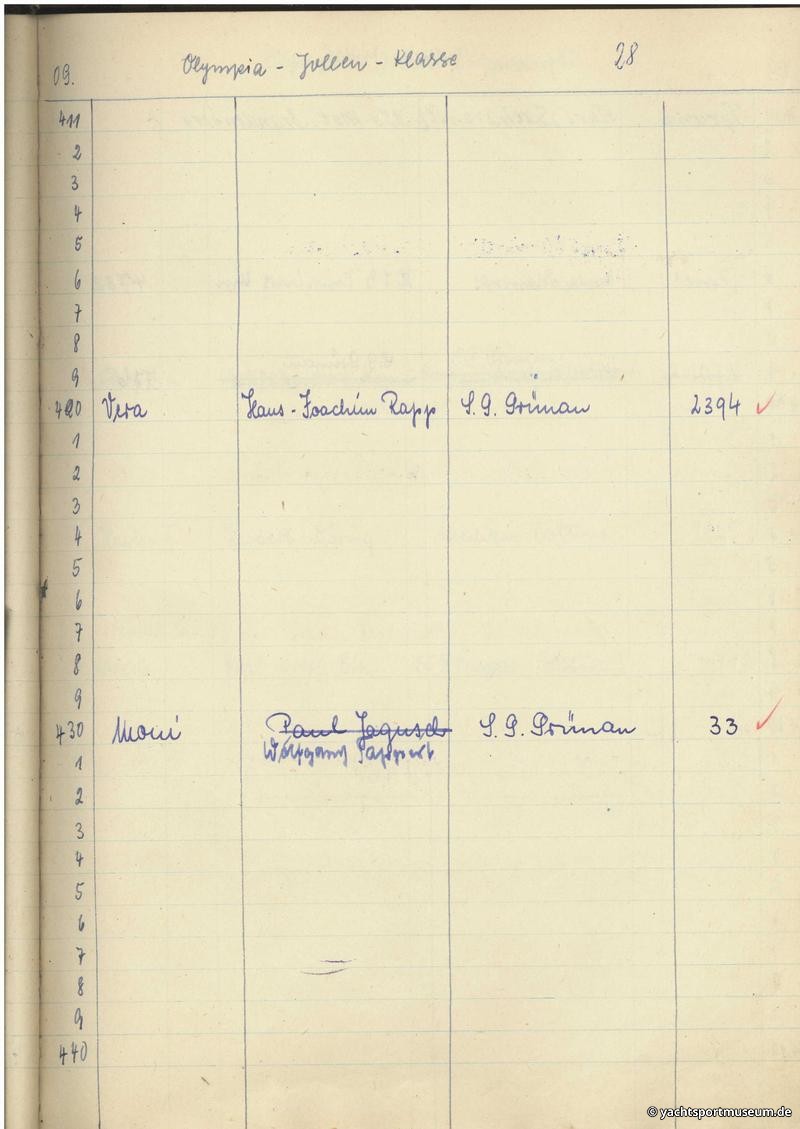 09. Olympia - Jollen - Klasse 28
411
2
3
4
5
6
7
8
9
420 Vera Hans - Joachim Rapp S. G. Grünau 2394 ✓
1
2
3
4
5
6
7
8
9
430 Moni Paul Jagusch S. G. Grünau 33 ✓
1 Wolfgang
2
3
4
5
6
7
8
9
440
© yachtsportmuseum.de